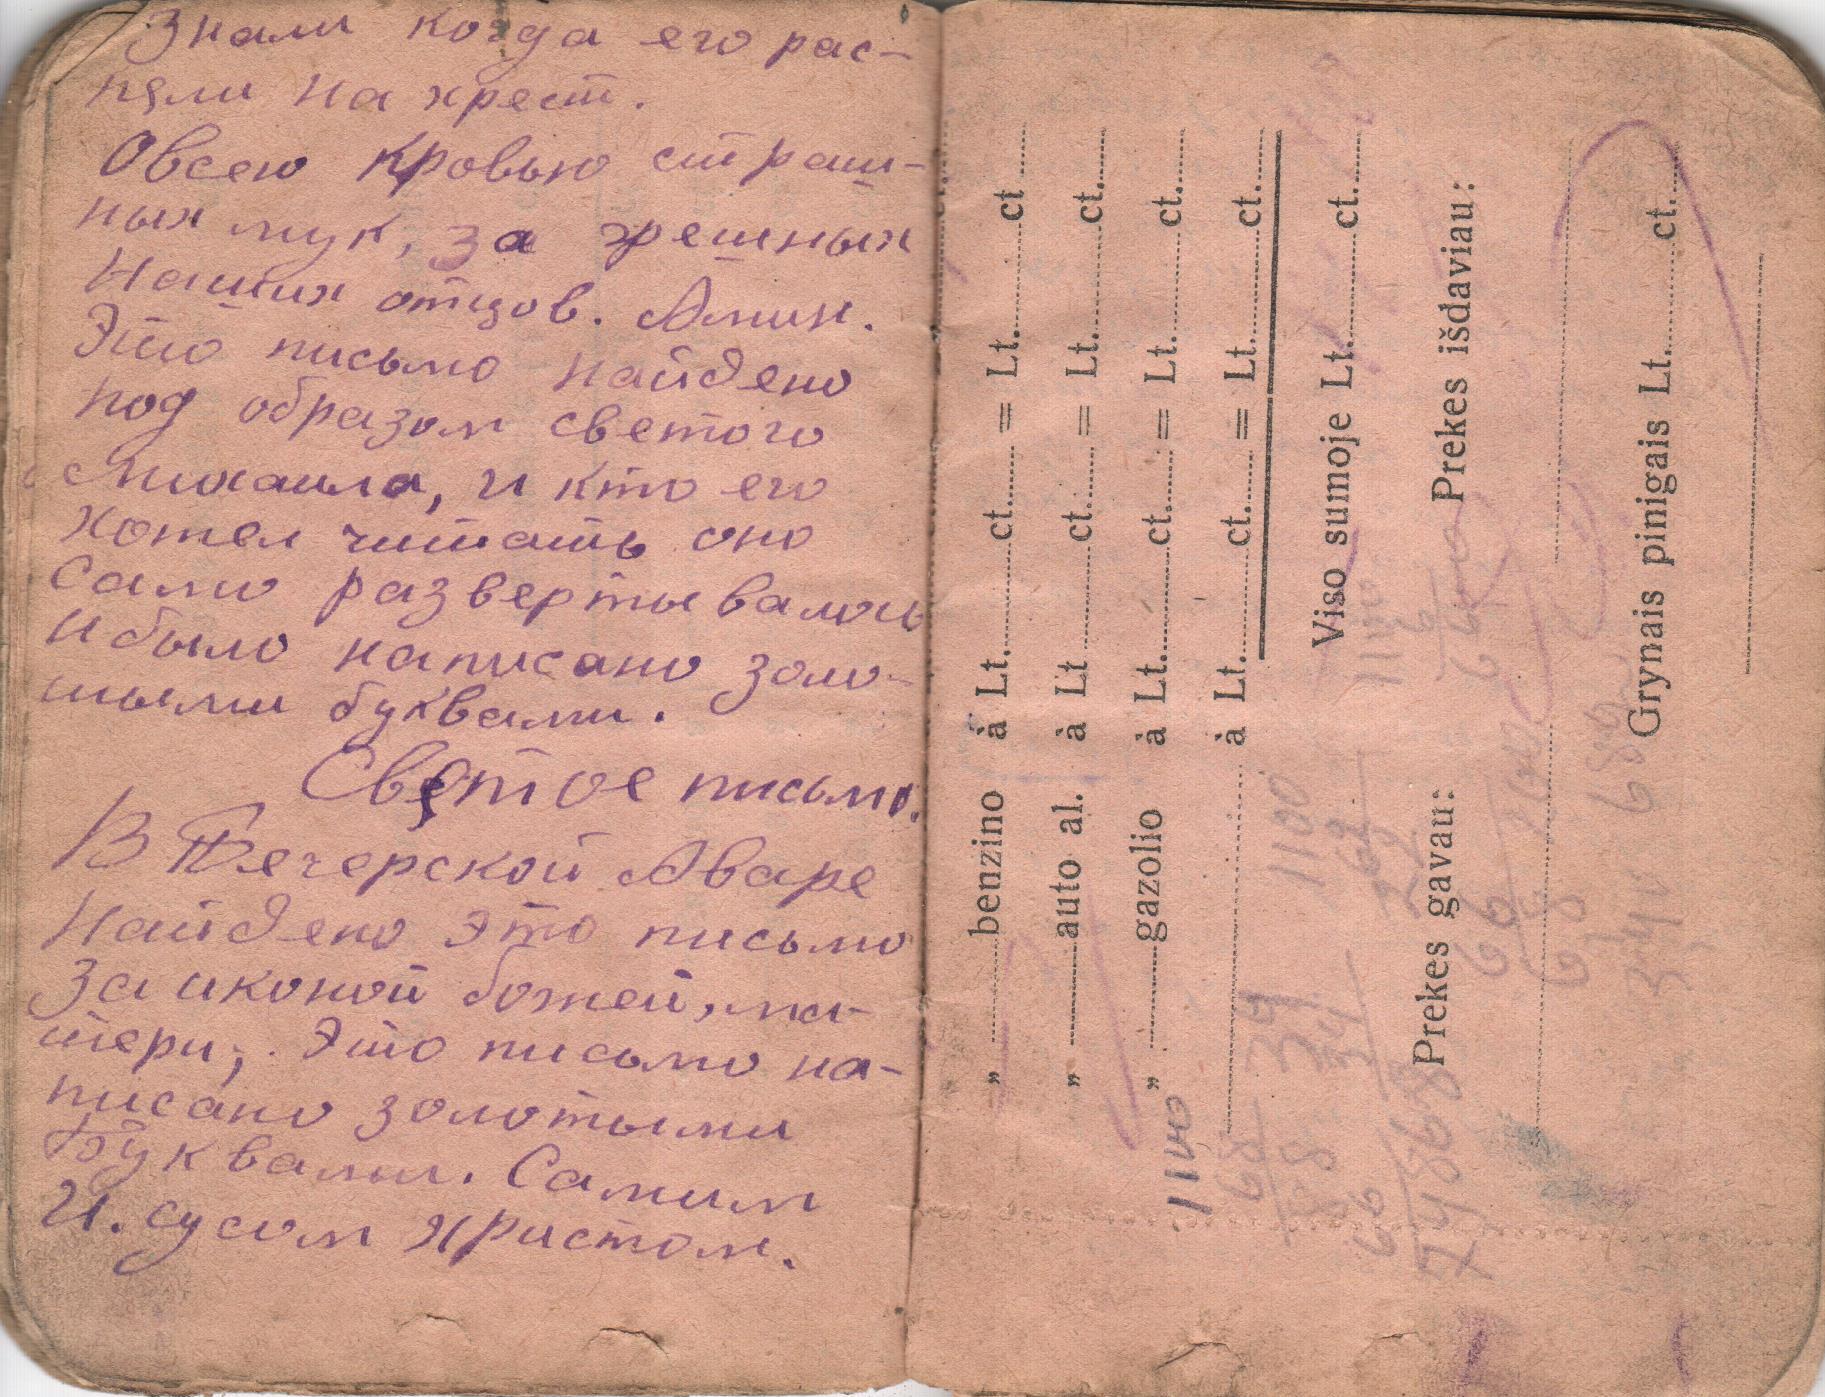 Знали когда его рас-
пяли на хрест.
Овсею кровью страш-
ных мук, за грешных
Наших отцов. Амин.
Это письмо найдено
под образом светого
Михаила, и кто его
хотел читать оно
Само развертывалось
И было написано золо-
тыми буквами.
Светое письмо.
В Печерской Лваре
Найдено это письмо
За иконой божей, ма-
тери,. Это письмо на-
писано золотыми
Буквами. Самим
И. сусом Христом.
„ benzino à Lt. ct. = Lt. ct
„ auto al. à Lt ct. = Lt. ct.
„ gazolio à Lt. ct. = Lt. ct.
à Lt. ct. = Lt. ct.
Viso sumoje Lt. ct.
Prekes gavau: Prekes išdaviau:
Grynais pinigais Lt. ct.